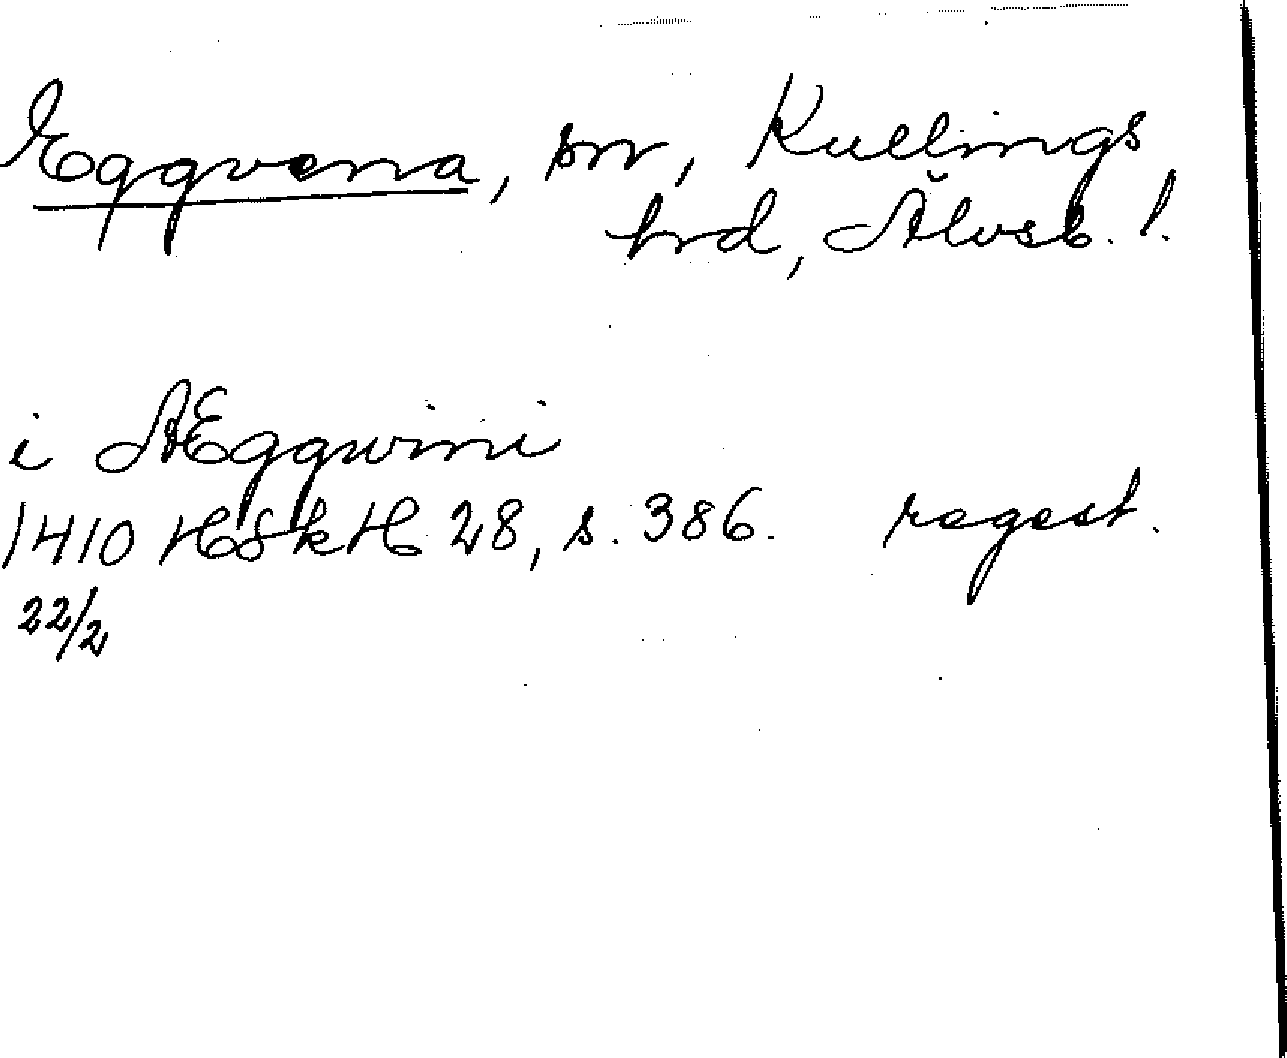 Eggvena, sn, Kullings
hrd, Älvsb. l.
i ÆEggwini
1410 HSkH 28, s. 386. regest.
22/2